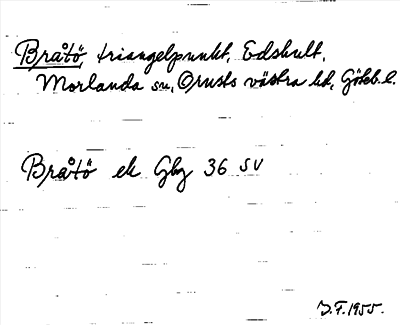 Bråtö, triangelpunkt, Edshult,
Morlanda sn, Orusts västra hd, Göteb. l.
Bråtö ek Gbg 36 SV
J.F. 1955.